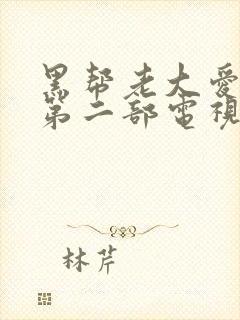 黑帮老大爱
第二部电视
林芹